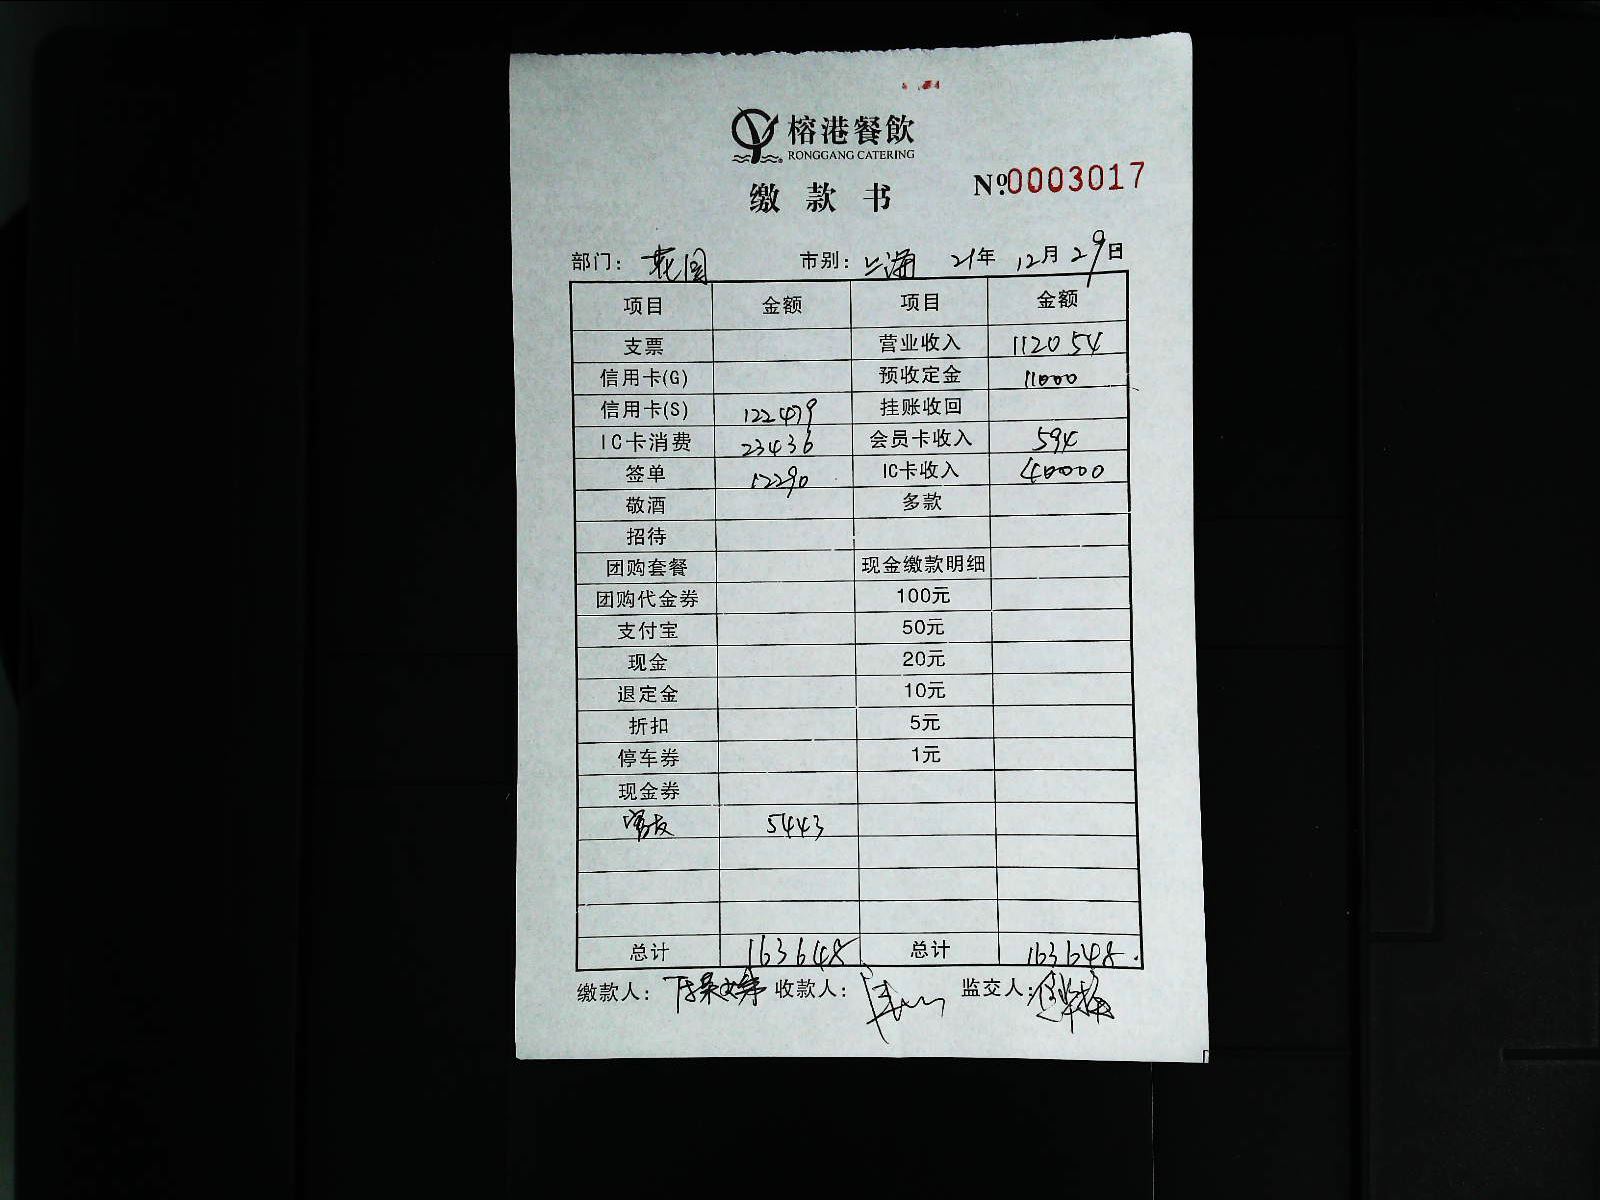 榕港餐飲
RONGGANG CATERING
缴款书 №0003017
部门：花园 市别：上海 21年 12月 29日
项目 金额 项目 金额
支票 营业收入 112054
信用卡(G) 预收定金 11000
信用卡(S) 122479 挂账收回
IC卡消费 23436 会员卡收入 594
签单 12290 IC卡收入 40000
敬酒 多款
招待
团购套餐 现金缴款明细
团购代金券 100元
支付宝 50元
现金 20元
退定金 10元
折扣 5元
停车券 1元
现金券
5443
总计 163648 总计 163648.
缴款人： 收款人： 监交人：